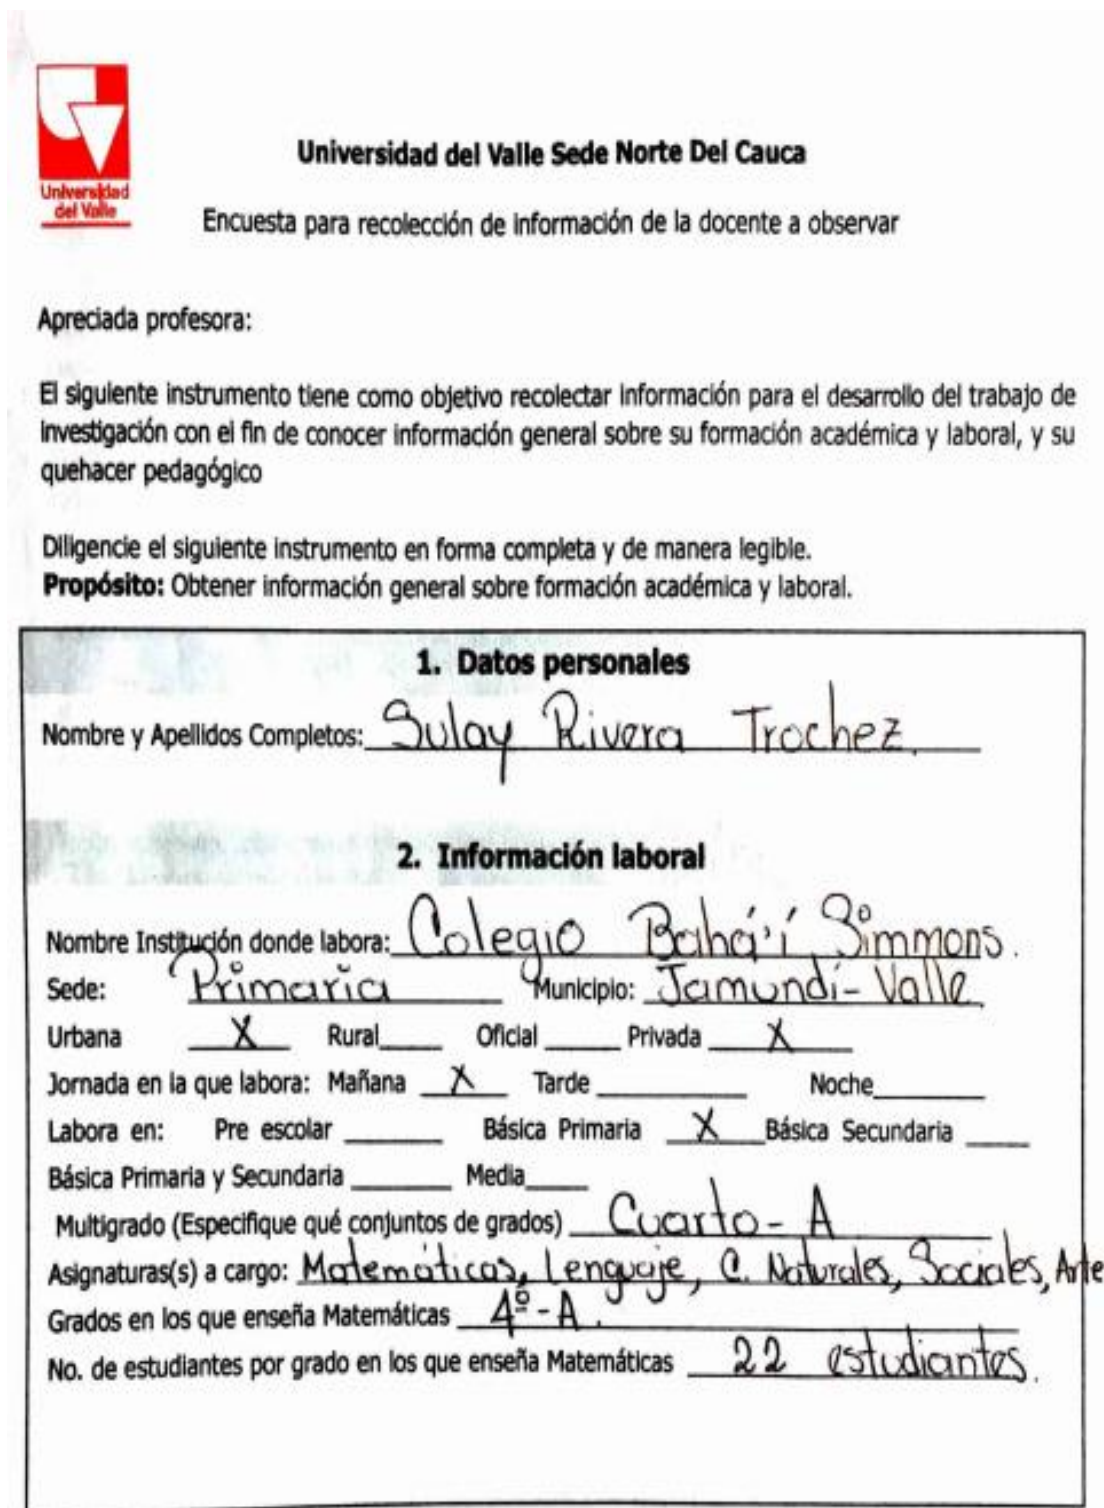 Universidad
del Valle
Universidad del Valle Sede Norte Del Cauca
Encuesta para recolección de información de la docente a observar
Apreciada profesora:
El siguiente instrumento tiene como objetivo recolectar información para el desarrollo del trabajo de
investigación con el fin de conocer información general sobre su formación académica y laboral, y su
quehacer pedagógico
Diligencie el siguiente instrumento en forma completa y de manera legible.
Propósito: Obtener información general sobre formación académica y laboral.
1. Datos personales
Nombre y Apellidos Completos: Sulay Rivera Trochez.
2. Información laboral
Nombre Institución donde labora: Colegio Bahá'í Simmons.
Sede: Primaria Municipio: Jamundí - Valle
Urbana X Rural____ Oficial ____ Privada X
Jornada en la que labora: Mañana X Tarde ____ Noche____
Labora en: Pre escolar ____ Básica Primaria X Básica Secundaria ____
Básica Primaria y Secundaria ____ Media____
Multigrado (Especifique qué conjuntos de grados) Cuarto - A
Asignaturas(s) a cargo: Matemáticas, Lenguaje, C. Naturales, Sociales, Arte
Grados en los que enseña Matemáticas 4º - A.
No. de estudiantes por grado en los que enseña Matemáticas 22 estudiantes.